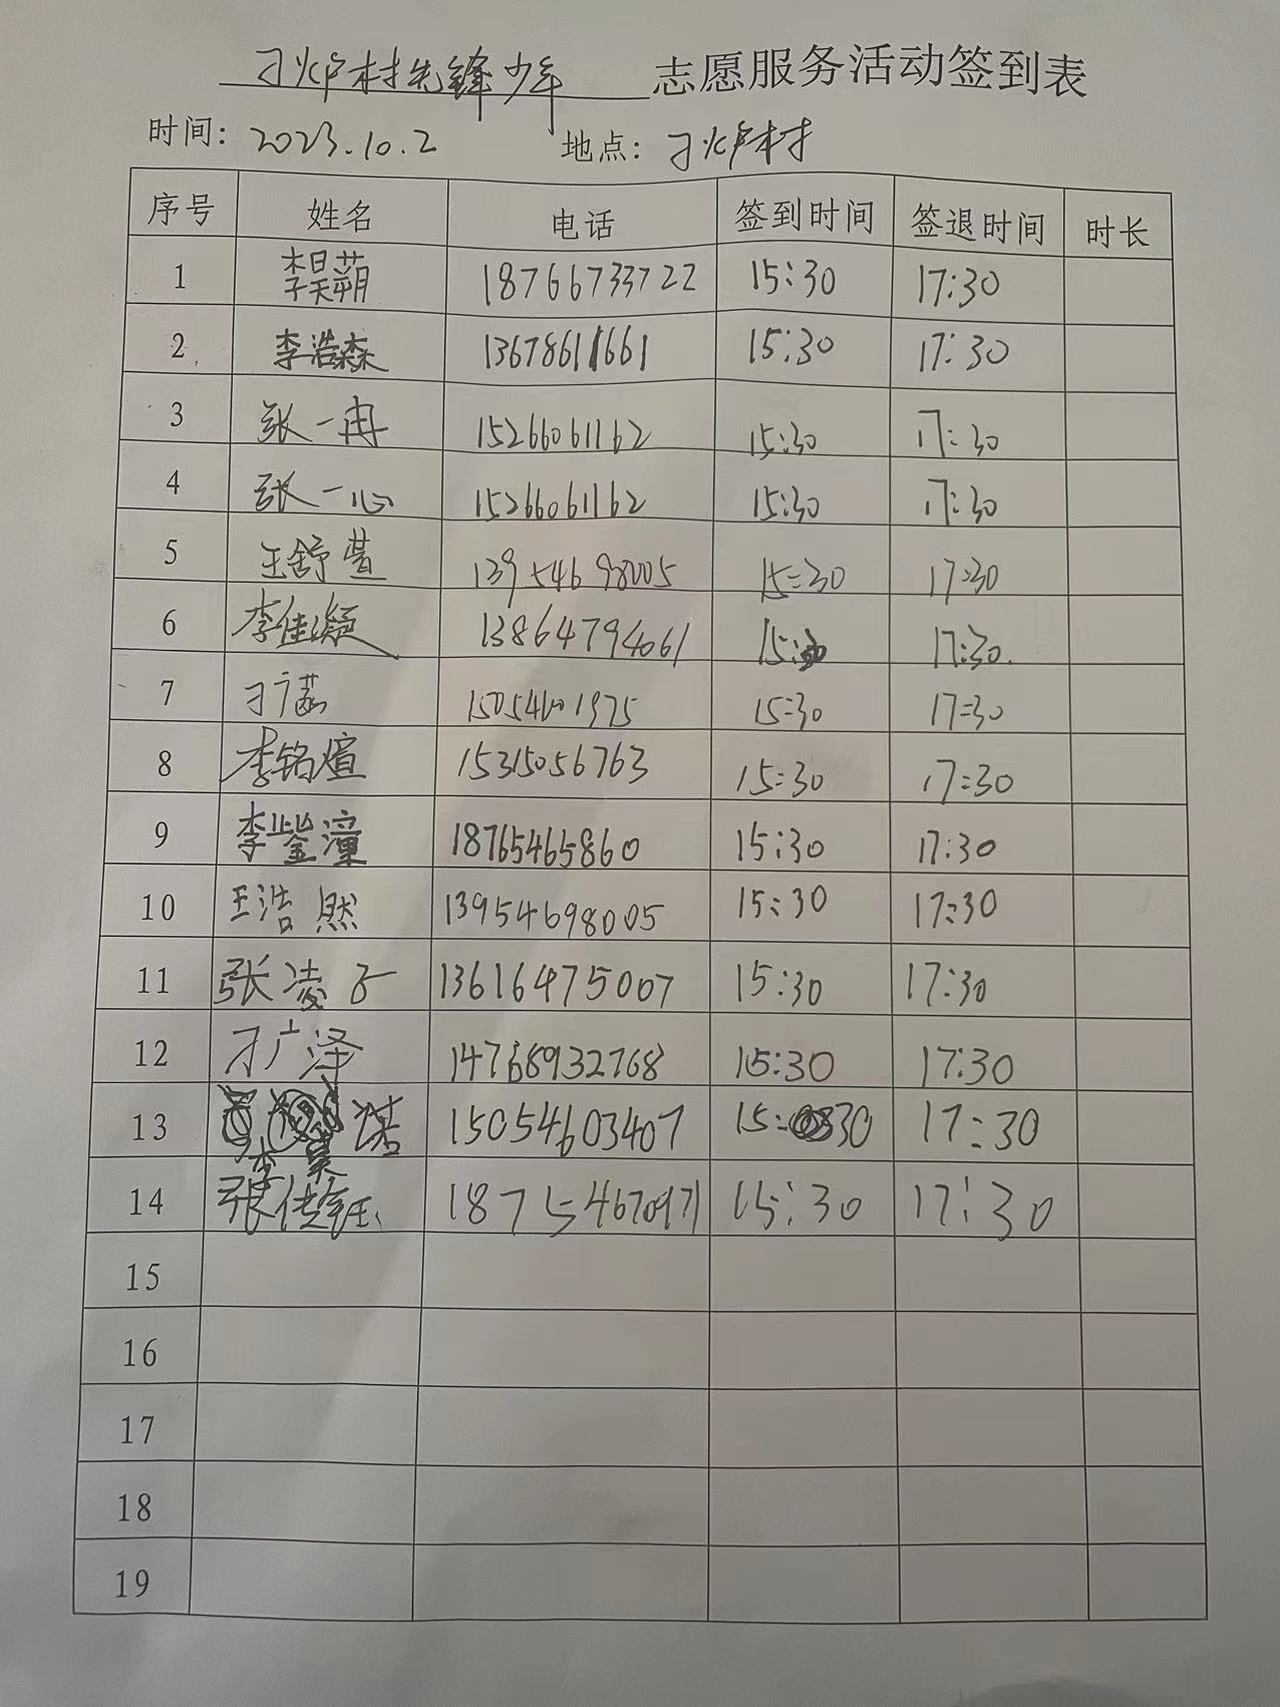 刁炉村先锋少年 志愿服务活动签到表
时间: 2023.10.2 地点: 刁炉村
序号 姓名 电话 签到时间 签退时间 时长
1 李昊蒴 18766733722 15:30 17:30
2 李浩森 13678611661 15:30 17:30
3 张一冉 15266061162 15:30 17:30
4 张一心 15266061162 15:30 17:30
5 王舒萱 13954698005 15:30 17:30
6 李佳凝 13864794061 15:30 17:30.
7 刁广茹 15054601975 15:30 17:30
8 李铭煊 15315056763 15:30 17:30
9 李鈭潼 18765465860 15:30 17:30
10 王浩然 13954698005 15:30 17:30
11 张凌子 13616475007 15:30 17:30
12 刁广泽 14768932768 15:30 17:30
13 李昊诺 15054603407 15:30 17:30
14 张佳钰 18754670971 15:30 17:30
15
16
17
18
19